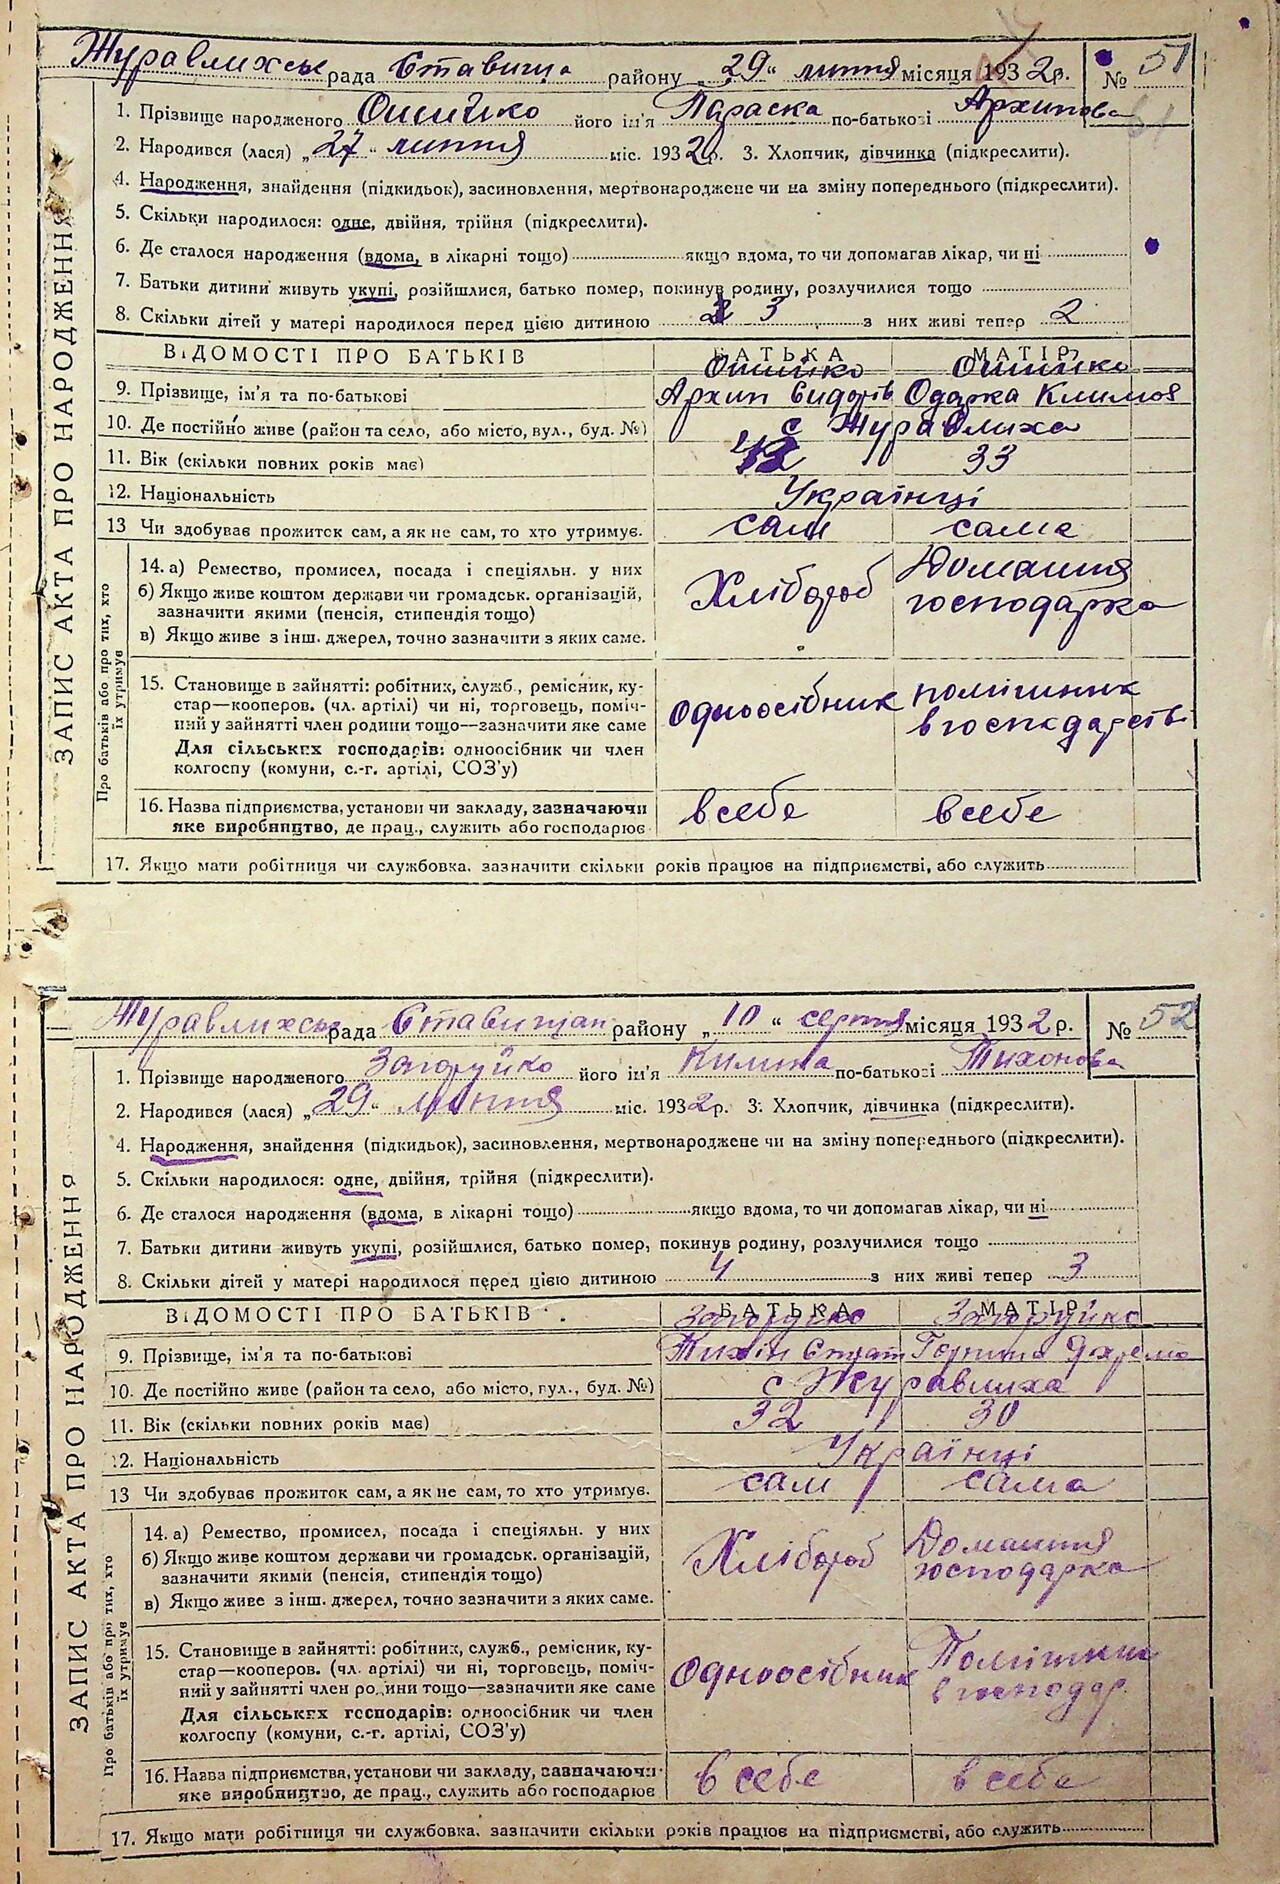 Журавлихськ рада Ставища району „29“ липня місяця 1932р. № 51
1. Прізвище народженого Ошийко його ім'я Параска по-батькові Архипова
2. Народився (лася) „27“ липня міс. 1932р. 3. Хлопчик, дівчинка (підкреслити).
4. Народження, знайдення (підкидьок), засиновлення, мертвонароджене чи на зміну попереднього (підкреслити).
5. Скільки народилося: одне, двійня, трійня (підкреслити).
6. Де сталося народження (вдома, в лікарні тощо) якщо вдома, то чи допомагав лікар, чи ні
7. Батьки дитини живуть укупі, розійшлися, батько помер, покинув родину, розлучилися тощо
8. Скільки дітей у матері народилося перед цією дитиною 3 з них живі тепер 2
ВІДОМОСТІ ПРО БАТЬКІВ БАТЬКА МАТІР
Ошийко Ошийко
9. Прізвище, ім'я та по-батькові Архип Сидорів Одарка Климов
10. Де постійно живе (район та село, або місто, вул., буд. №) с Журавлиха
11. Вік (скільки повних років має) 33
12. Національність Українці
13 Чи здобуває прожиток сам, а як не сам, то хто утримує. сам сама
ЗАПИС АКТА ПРО НАРОДЖЕННЯ
Про батьків або про тих, хто їх утримує
14. а) Ремество, промисел, посада і спеціяльн. у них Хлібороб Домашня
б) Якщо живе коштом держави чи громадськ. організацій, господарка
зазначити якими (пенсія, стипендія тощо)
в) Якщо живе з інш. джерел, точно зазначити з яких саме.
15. Становище в зайнятті: робітник, служб., ремісник, ку- Одноосібник помішник
стар—кооперов. (чл. артілі) чи ні, торговець, поміч- в господарстві
ний у зайнятті член родини тощо—зазначити яке саме
Для сільських господарів: одноосібник чи член
колгоспу (комуни, с.-г. артілі, СОЗ'у)
16. Назва підприємства, установи чи закладу, зазначаючи в себе в себе
яке виробництво, де прац., служить або господарює
17. Якщо мати робітниця чи службовка, зазначити скільки років працює на підприємстві, або служить
Журавлихськ рада Ставищан району „10“ серпня місяця 1932р. № 52
1. Прізвище народженого Загоруйко його ім'я Килина по-батькові Тихонова
2. Народився (лася) „29“ липня міс. 1932р. 3. Хлопчик, дівчинка (підкреслити).
4. Народження, знайдення (підкидьок), засиновлення, мертвонароджене чи на зміну попереднього (підкреслити).
5. Скільки народилося: одне, двійня, трійня (підкреслити).
6. Де сталося народження (вдома, в лікарні тощо) якщо вдома, то чи допомагав лікар, чи ні
7. Батьки дитини живуть укупі, розійшлися, батько помер, покинув родину, розлучилися тощо
8. Скільки дітей у матері народилося перед цією дитиною 4 з них живі тепер 3
ВІДОМОСТІ ПРО БАТЬКІВ БАТЬКА МАТІР
Загоруйко Загоруйко
9. Прізвище, ім'я та по-батькові Тихін
10. Де постійно живе (район та село, або місто, вул., буд. №) с Журавлиха
11. Вік (скільки повних років має) 32 30
12. Національність Українці
13 Чи здобуває прожиток сам, а як не сам, то хто утримує. сам сама
ЗАПИС АКТА ПРО НАРОДЖЕННЯ
Про батьків або про тих, хто їх утримує
14. а) Ремество, промисел, посада і спеціяльн. у них Хлібороб Домашня
б) Якщо живе коштом держави чи громадськ. організацій, господарка
зазначити якими (пенсія, стипендія тощо)
в) Якщо живе з інш. джерел, точно зазначити з яких саме.
15. Становище в зайнятті: робітник, служб., ремісник, ку- Одноосібник Помішник
стар—кооперов. (чл. артілі) чи ні, торговець, поміч- в господар
ний у зайнятті член родини тощо—зазначити яке саме
Для сільських господарів: одноосібник чи член
колгоспу (комуни, с.-г. артілі, СОЗ'у)
16. Назва підприємства, установи чи закладу, зазначаючи в себе в себе
яке виробництво, де прац., служить або господарює
17. Якщо мати робітниця чи службовка, зазначити скільки років працює на підприємстві, або служить